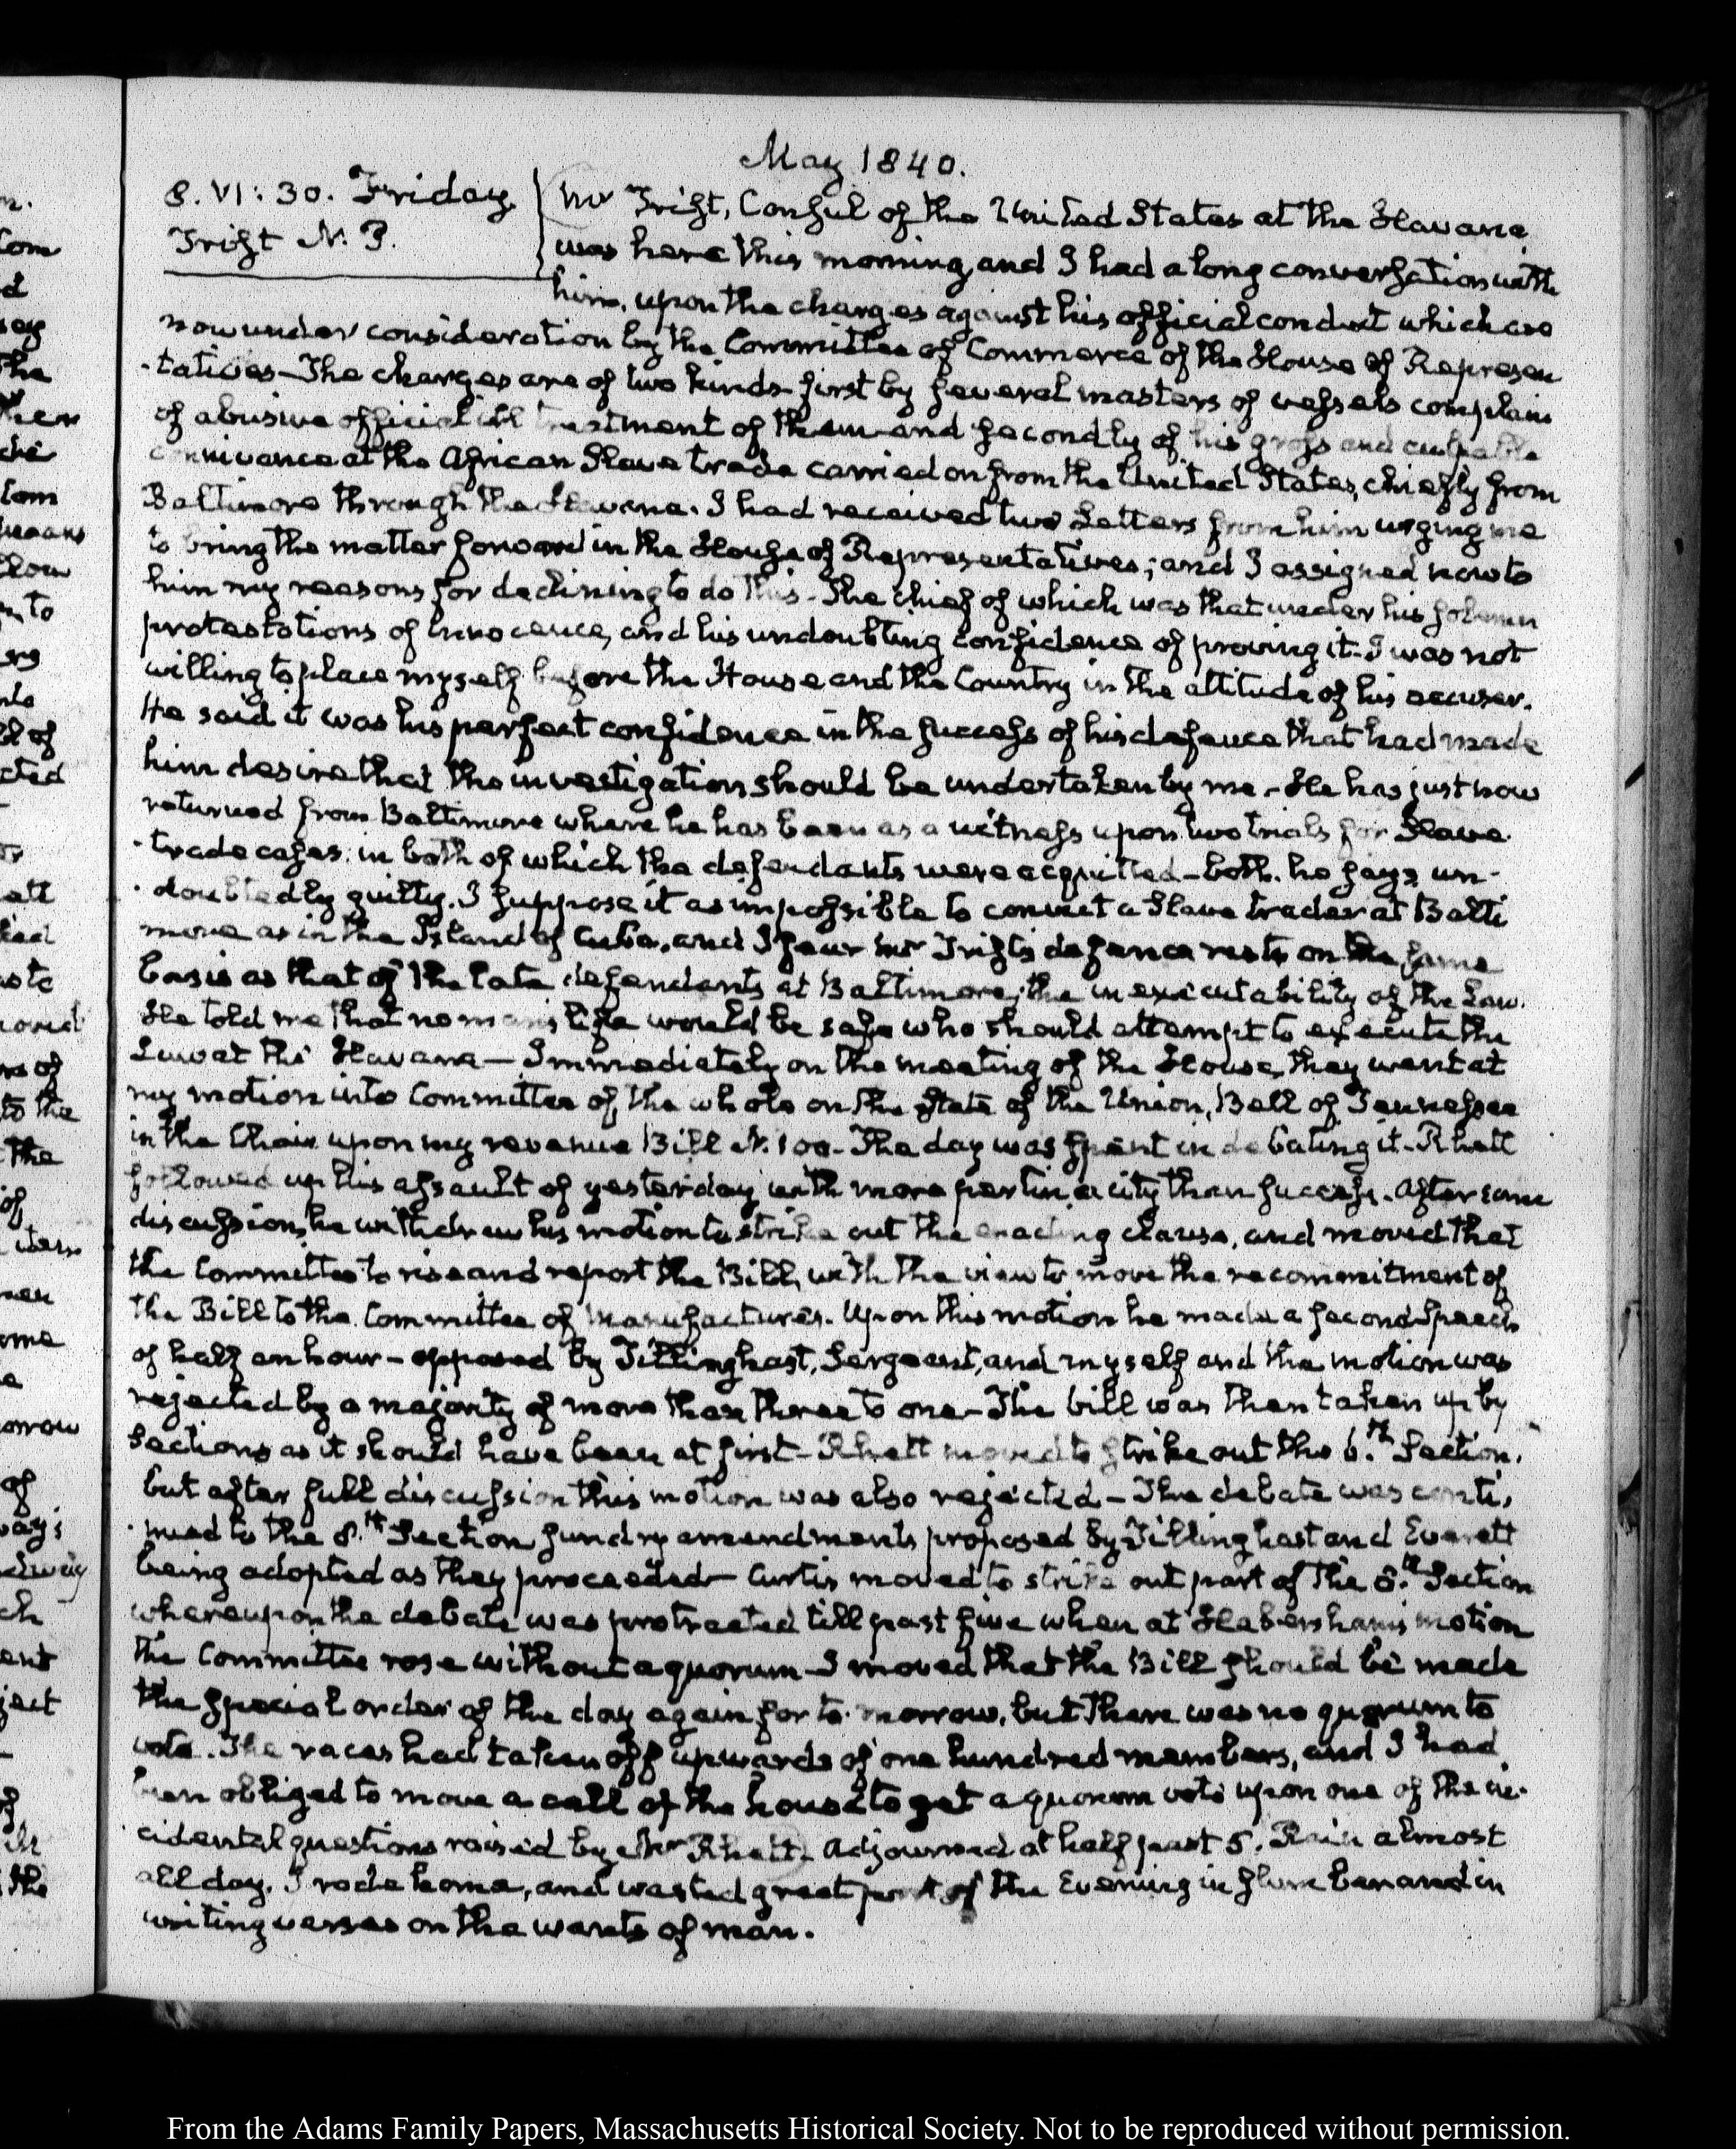 May 1840.
8. VI: 30. Friday.
Trist N. P.
Mr Trist, Consul of the United States at the Havana
was here this morning, and I had a long conversation with
him, upon the charges against his official conduct which are
now under consideration by the Committee of Commerce of the House of Represen
-tatives—The charges are of two kinds—first by several masters of vessels complain
of abusive official ill treatment of them—and secondly of his gross and culpable
connivance at the African Slave trade carried on from the United States, chiefly from
Baltimore through the Havana. I had received two Letters from him urging me
to bring the matter forward in the House of Representatives; and I assigned now to
him my reasons for declining to do this—The chief of which was that under his solemn
protestations of innocence, and his undoubting confidence of proving it—I was not
willing to place myself before the House and the Country in the attitude of his accuser.
He said it was his perfect confidence in the success of his defence that had made
him desire that the investigation should be undertaken by me—He has just now
returned from Baltimore where he has been as a witness upon two trials for Slave
-trade cases: in both of which the defendants were acquitted—both, he says, un-
-doubtedly guilty. I suppose it as impossible to convict a Slave trader at Balti
more as in the Island of Cuba, and I fear Mr Trist's defence rests on the same
basis as that of the late defendants at Baltimore; the inexecutability of the Law.
He told me that no man's life would be safe who should attempt to execute the
Law at the Havana—Immediately on the meeting of the House, they went at
my motion into Committee of the whole on the State of the Union, Bell of Tennessee
in the Chair upon my revenue Bill N. 100—The day was spent in debating it—Rhett
followed up his assault of yesterday with more pertinacity than success. After some
discussion he withdrew his motion to strike out the enacting clause, and moved that
the Committee to rise and report the Bill, with the view to move the recommitment of
the Bill to the Committee of Manufactures. Upon this motion he made a second Speech
of half an hour—opposed by Tillinghast, Sergeant, and myself and the motion was
rejected by a majority of more than three to one—The bill was then taken up by
Sections as it should have been at first—Rhett moved to strike out the 6.th Section,
but after full discussion this motion was also rejected—The debate was conti,
-nued to the 8.th Section sundry amendments proposed by Tillinghast and Everett
being adopted as they proceeded—Curtis moved to strike out part of the 8.th Section
whereupon the debate was protracted till past five when at Habersham's motion
the Committee rose without a quorum—I moved that the Bill should be made
the special order of the day again for to-morrow, but there was no quorum to
vote. The races had taken off upwards of one hundred members, and I had
been obliged to move a call of the house to get a quorum vote upon one of the in-
cidental questions raised by Mr Rhett—Adjourned at half past 5. Rain almost
all day. I rode home, and wasted great part of the Evening in slumber and in
writing verses on the wants of man.
From the Adams Family Papers, Massachusetts Historical Society. Not to be reproduced without permission.